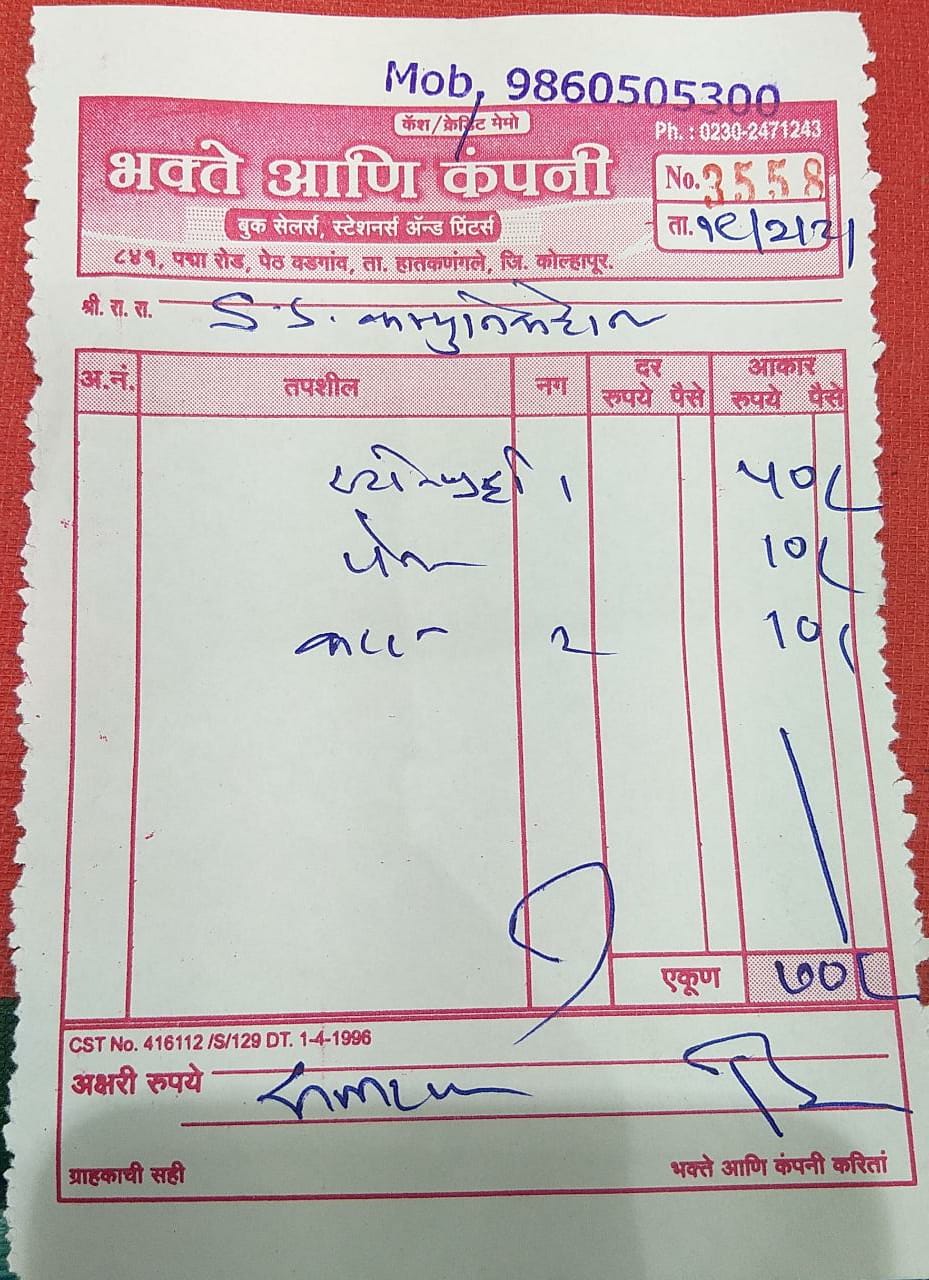 Mob. 9860505300
कॅश/क्रेडिट मेमो
Ph. : 0230-2471243
भक्ते आणि कंपनी
No. 3558
बुक सेलर्स, स्टेशनर्स ॲन्ड प्रिंटर्स
ता.
८४१, पद्मा रोड, पेठ वडगांव, ता. हातकणंगले, जि. कोल्हापूर.
श्री. रा. रा. S.S. कम्युनिकेशन
अ.नं. तपशील नग दर रुपये पैसे आकार रुपये पैसे
1 ५०
पेन 10
2 10
एकूण ७०
CST No. 416112 /S/129 DT. 1-4-1996
अक्षरी रुपये
ग्राहकाची सही भक्ते आणि कंपनी करितां